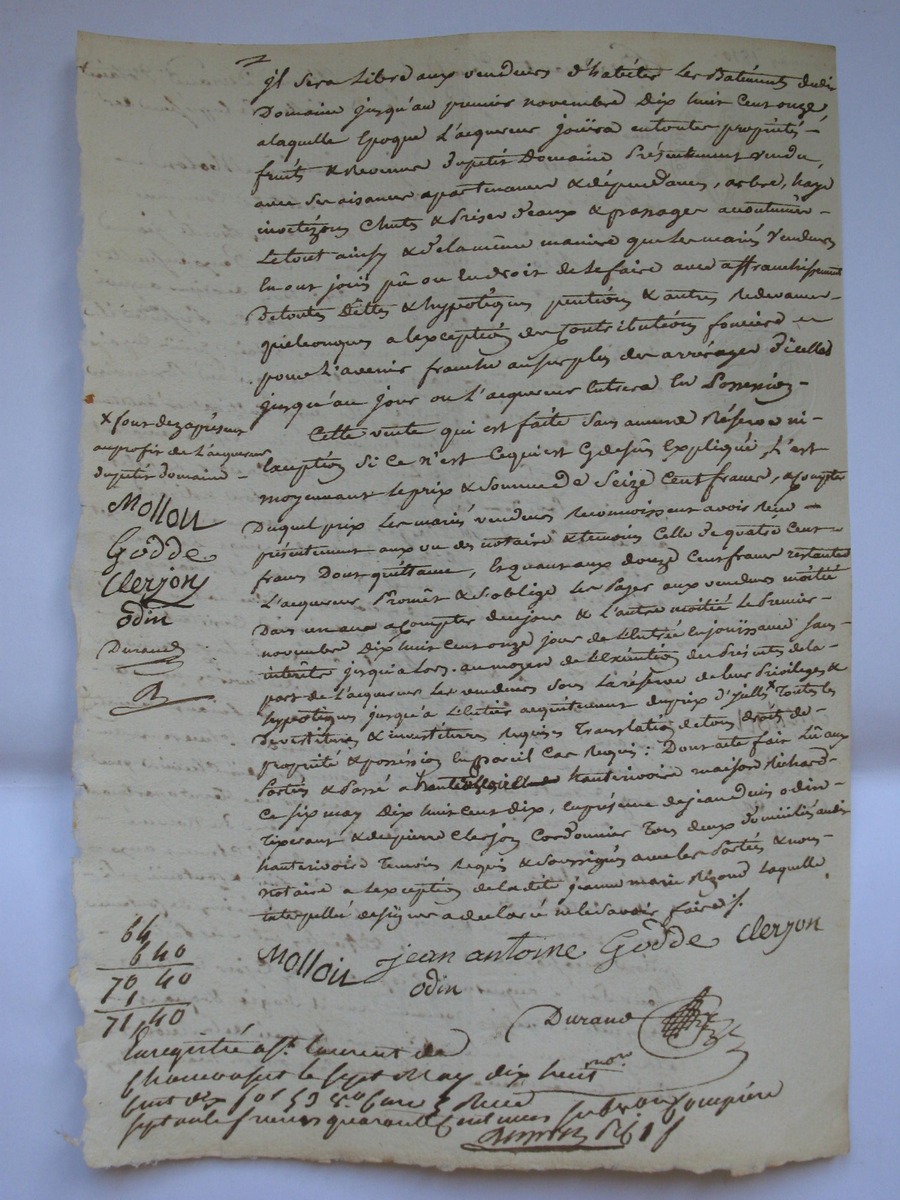 jl sera Libre aux vendeurs d'habiter Les Batiments dudit
Domaine jusqu'au premier novembre Dix huit cent onze
alaquelle Epoque L'acquereur jouira entoute propriété
fruits & Revenus dupetit Domaine Présentement vendu,
avec ses aisances apartenances & dépendances, arbres, haye
Chutes & prises d'eaux & passages acoutumés
Letout ainsy & dela même maniere que les mariés vendeurs
En ont jouis pû ou dû droit de le faire avec affranchissement
De toutes Dêttes & hypotéques pentions & autres Redevances
quelconques a lexception des Contributions foncieres
pour l'avenir franche au surplus des arrérages d'icelles
jusqu'au jour ou L'acquereur Entrera En Possession
Cette vente qui est faite Sans aucune Réserve ni
Exception Si ce n'est Cequi est Cydessus Expliqué, L'est
moyennant Le prix & Somme De Seize Cent francs, acompte
Duquel prix Les mariés vendeurs Reconnoissent avoir Reçu
présentement aux vu des notaire & temoins Celle de quatre Cent
francs Dont quittance, Et quant aux douze Cent francs restantes
L'acquereur Promêt & s'oblige Les Payer aux vendeurs moitié
Dans un an a Compter de ce jour & l'autre moitié Le Premier
novembre Dix huit cent onze jour de l'Entrée en jouissance sans
intérêts jusqu'a Lors. au moyen de l'Exécution des Présentes de la
part de L'acquereur Les vendeurs Sous la réserve de leur Privileges &
hypotéques jusqu'a L'entier acquitement du prix d'icelle x Toutes les
Devestitures & investitures Requises Translation de tous droits de
propriété & possession En pareil Cas Requis : Dont acte fait Lû aux
Parties & Passé a hauterivoire maison Richard
Ce six may Dix huit Cent Dix, En présence de jean odin
Tixerant & de pierre Clerjon Cordonnier Tous deux domiciliés audit
hauterivoire Temoins Requis & Soussignés avec les Parties & nous
notaire a lexception de la dite jeanne marie laquelle
interpellée de signer a declaré ne le savoir faire /.
x font dezapresent
au profit de L'acquereur
dupetit domaine
Mollon
Godde
Clerjon
odin
Durand
64
6 40
70 40
1
71, 40
Mollon jean antoine Godde Clerjon
odin
Durand
nore
Enregistré a St. Laurent de
Chamousset le sept May dix huit
Cent dix fol 53 Case 3 Reçu
septante francs quarante Centimes Subvention Comprise